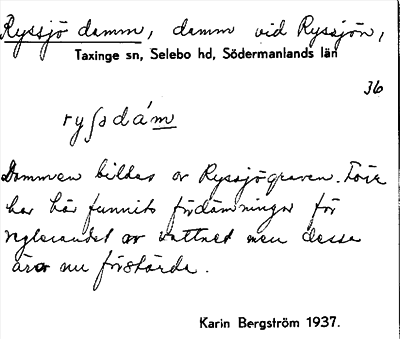 Ryssjö damm, damm vid Ryssjön,
Taxinge sn, Selebo hd, Södermanlands län
36
ryʃədám
Dammen bildas av Ryssjögraven. Förr
har här funnits fördämningar för
reglerandet av vattnet men dessa
äro nu förstörda.
Karin Bergström 1937.